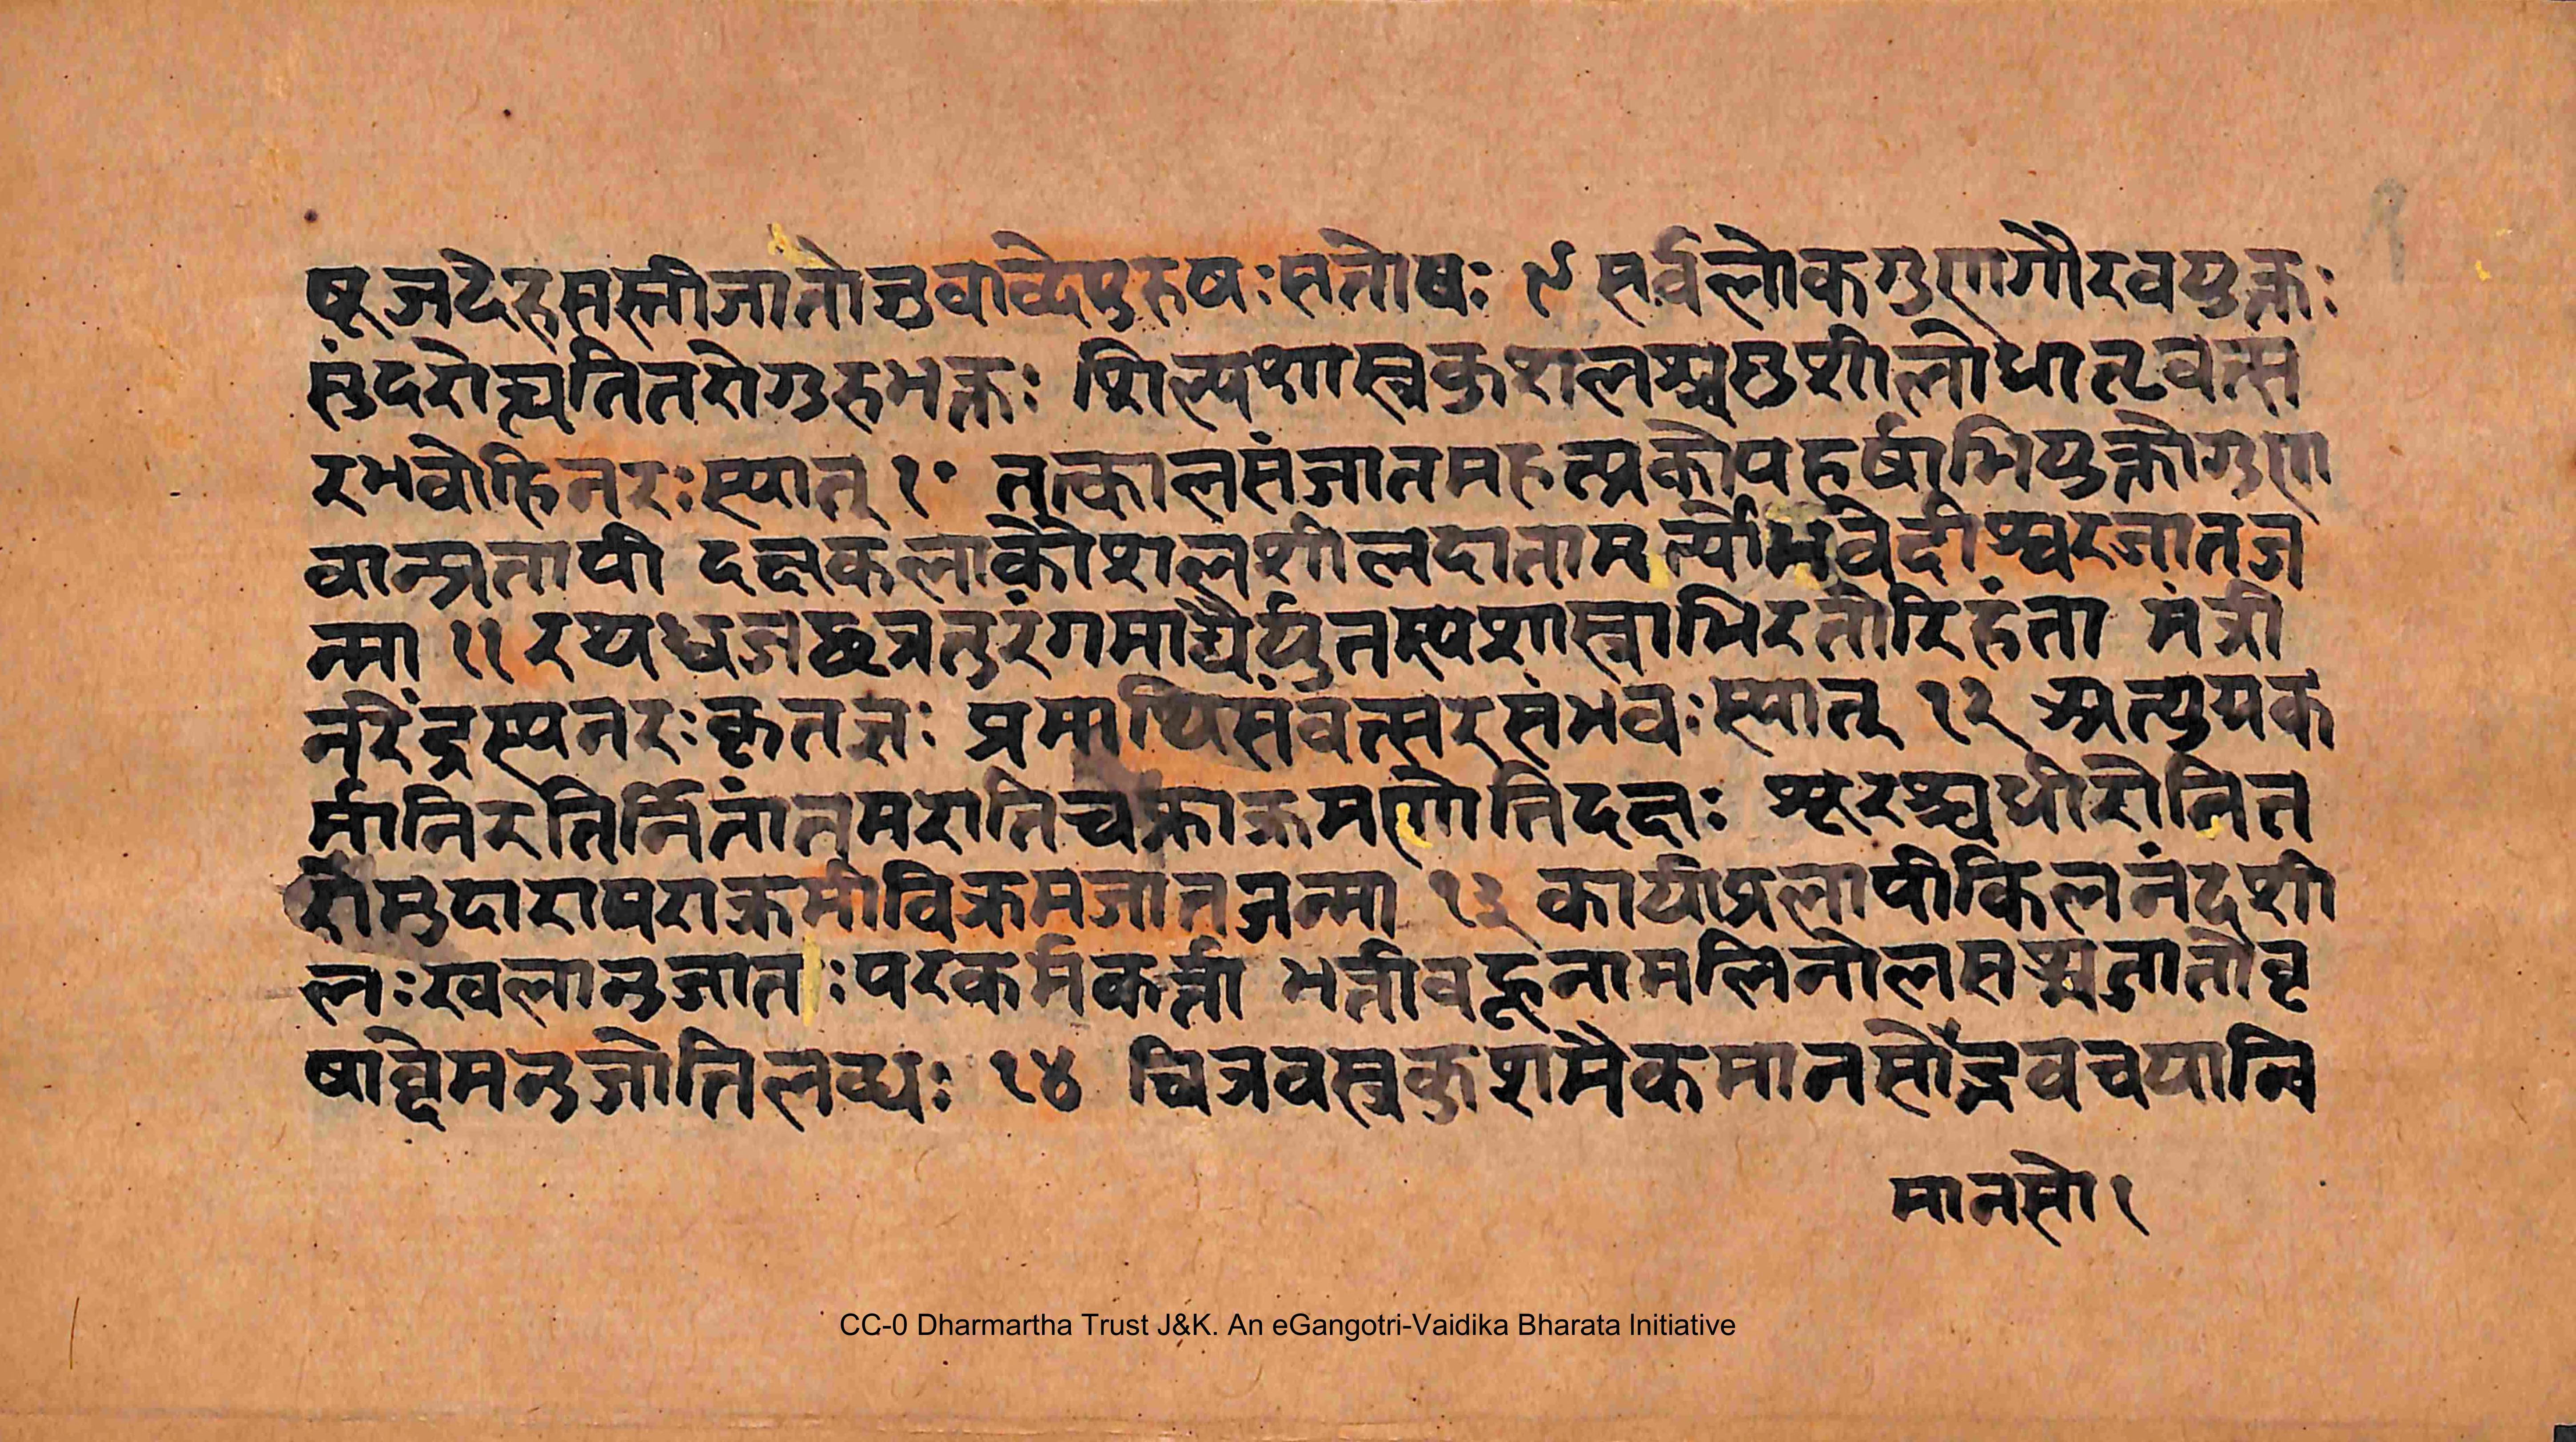 षूजदेहसस्त्रीजातोयुवाव्देपुरुषःसतोषः ९ सर्वलोकगुणगौरवयुक्तः
सुंदरोप्यतितरोगुरुभक्तः शिल्पशास्त्रकुशलश्चसुशीलोधातृवत्स
रभवोहिनरःस्यात् १० तत्कालसंजातमहत्प्रकोपहर्षाभियुक्तोगुण
वान्प्रतापी दक्षकलाकौशलशीलदातामर्त्योभवेदीश्वरजातज
न्मा ११ रथध्वजछत्रतुरंगमाद्यैर्युतस्यशास्त्राभिरतोरिहंता मंत्री
नरेंद्रस्यनरःकृतज्ञः प्रमाथिसंवत्सरसंभवःस्यात् १२ अत्युग्रक
र्मानिरतिर्नितांतमरातिचक्राक्रमणोतिदक्षः शूरश्चधीरोतित
रोमुदारापराक्रमीविक्रमजातजन्मा १३ कार्याप्रलापीकिलनंदशी
लःखलानुजातःपरकर्मकर्त्ता भर्त्ताबहूनामलिनोलसश्चजातोवृ
षाब्देमनुजोतिलब्धः १४ चित्रवस्त्रकुशमैकमानसोद्भवचयालि
मानसो १
CC-0 Dharmartha Trust J&K. An eGangotri-Vaidika Bharata Initiative